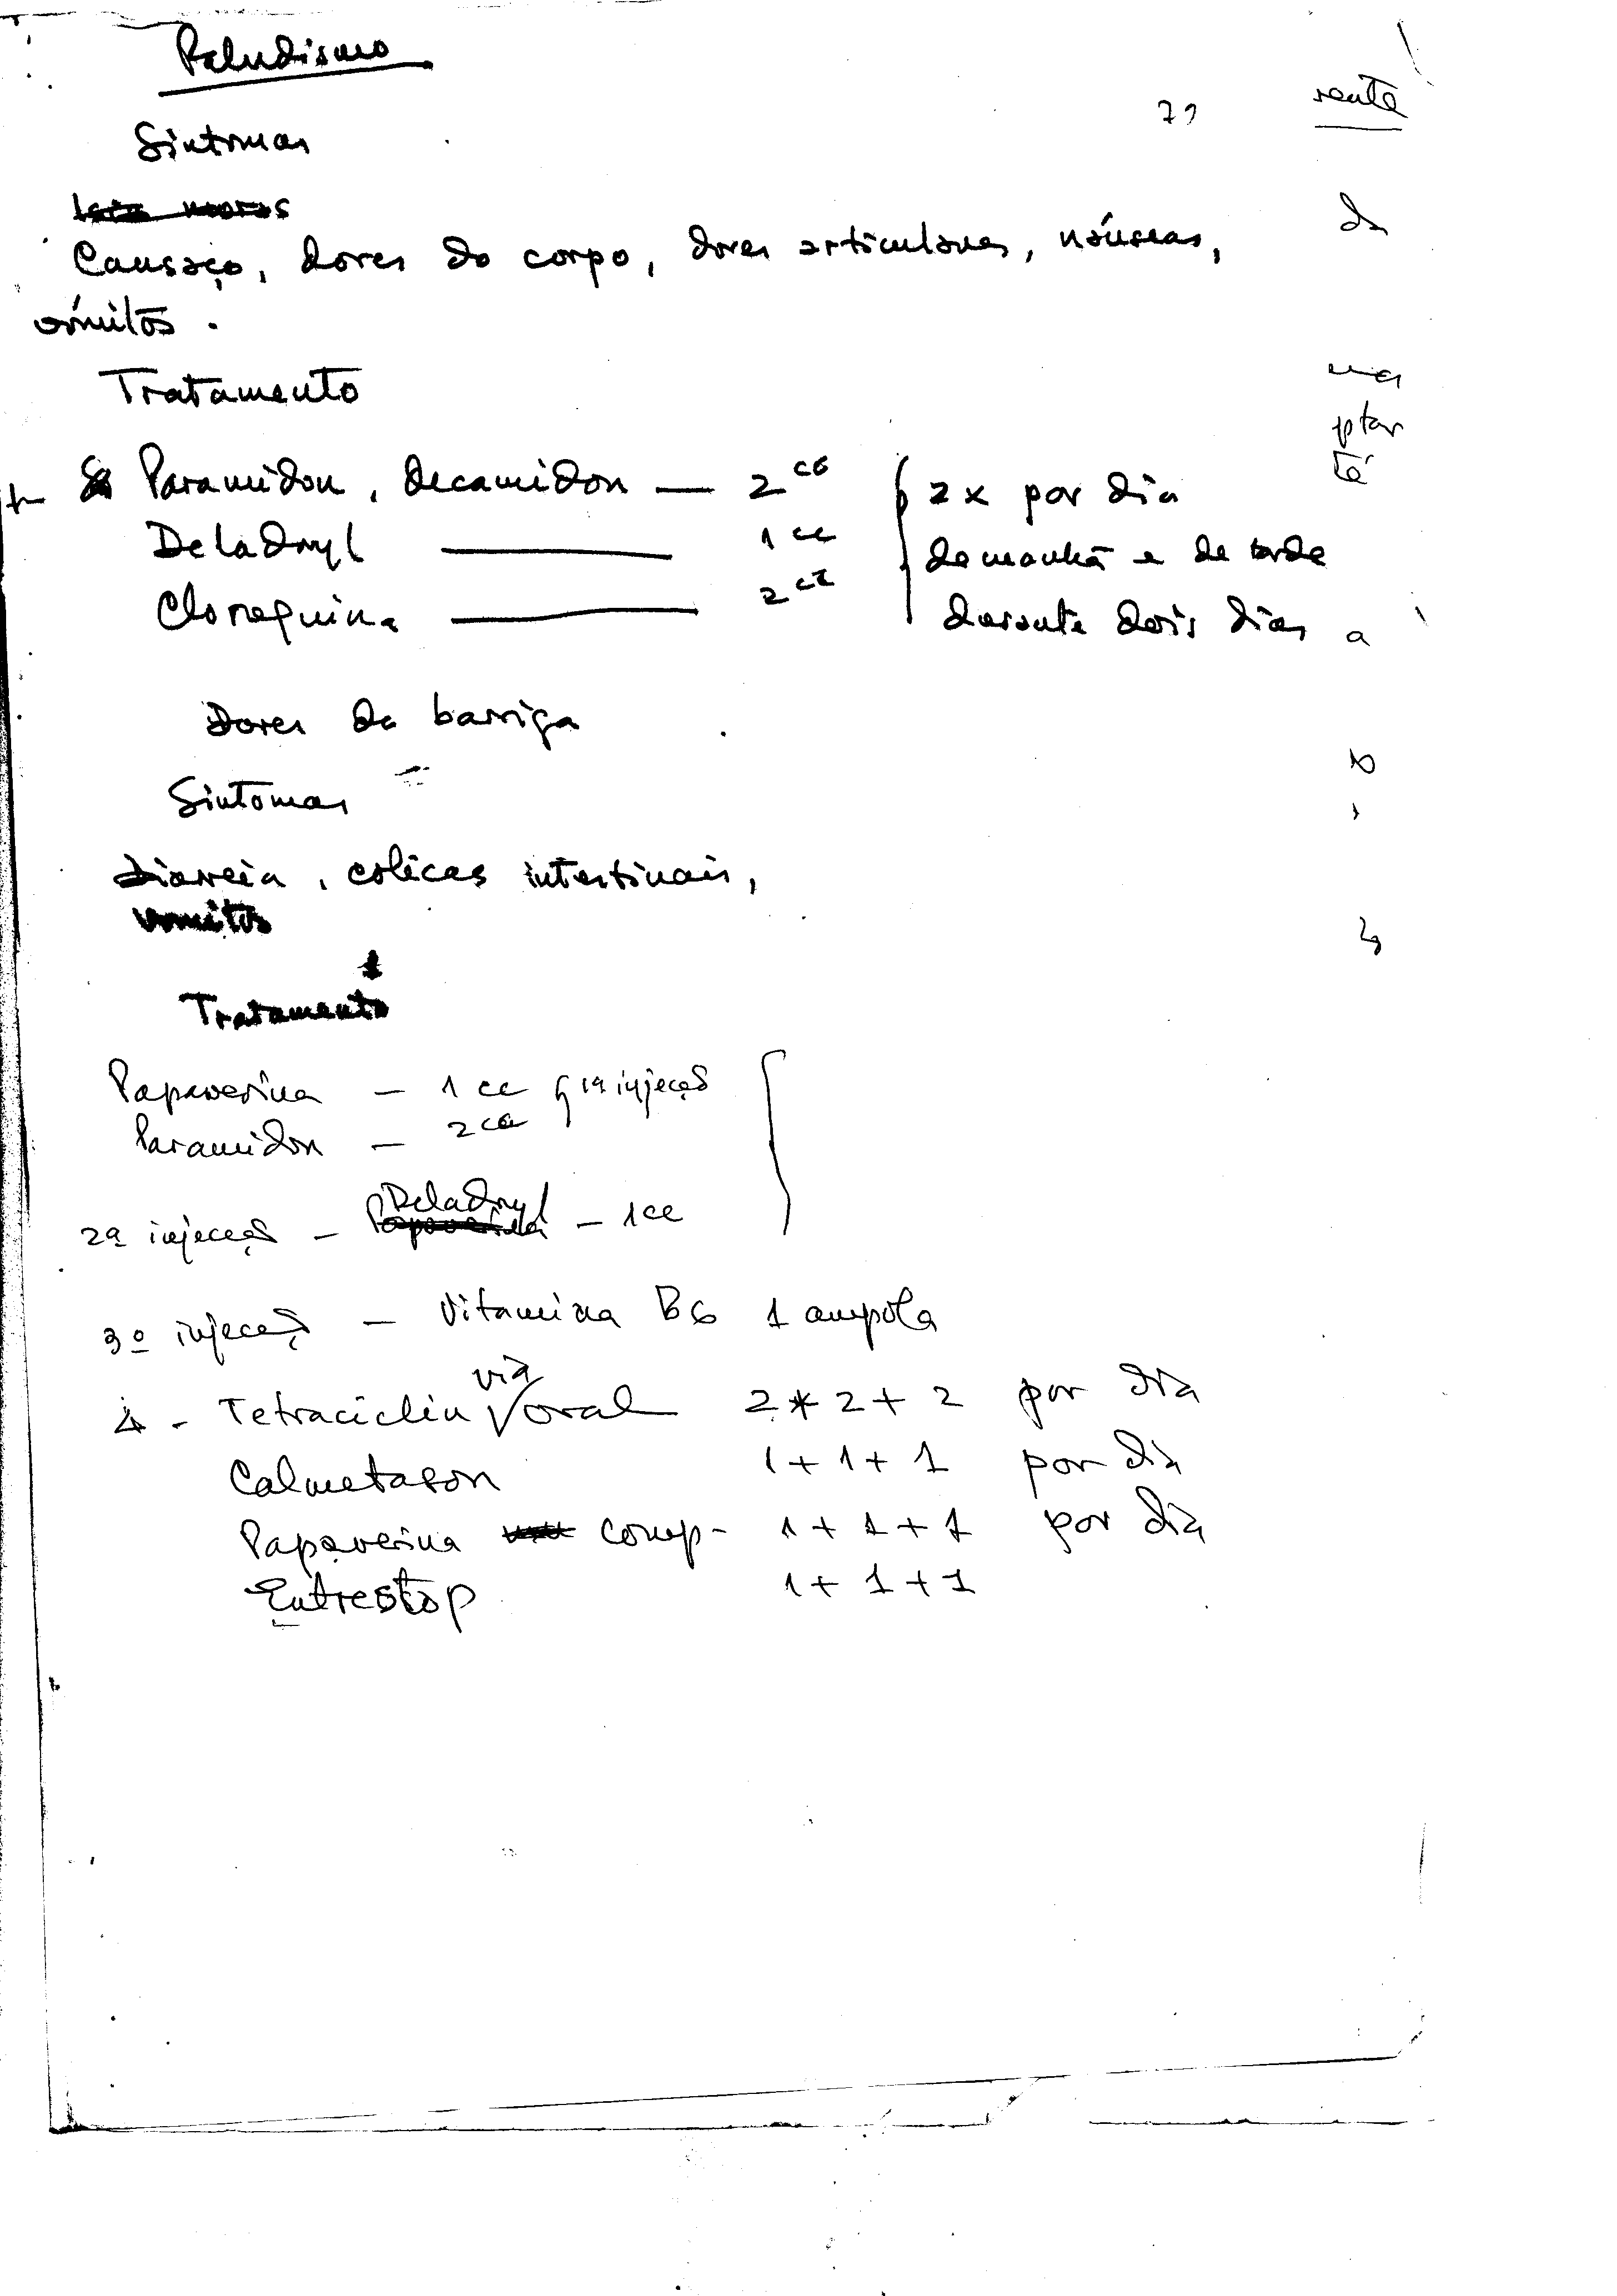 Paludismo
Sintomas
Cansaço, dores do corpo, dores articulares, náuseas,
vómitos.
Tratamento
Paramidon, decamidon — 2 cc { 2x por dia
Deladryl — 1 cc de manhã e de tarde
Cloroquina — 2 cc durante dois dias
Dores de barriga
Sintomas
Diarreia, cólicas intestinais,
vomitos
Tratamento
Papaverina — 1 cc } 1ª injecção
Paramidon — 2 cc
2ª injecção — Deladryl — 1 cc
3º injecção — Vitamina B6 1 ampola
4 - Tetraciclin via oral 2+2+2 por dia
Calmetason 1+1+1 por dia
Papaverina comp- 1+1+1 por dia
Entrestop 1+1+1